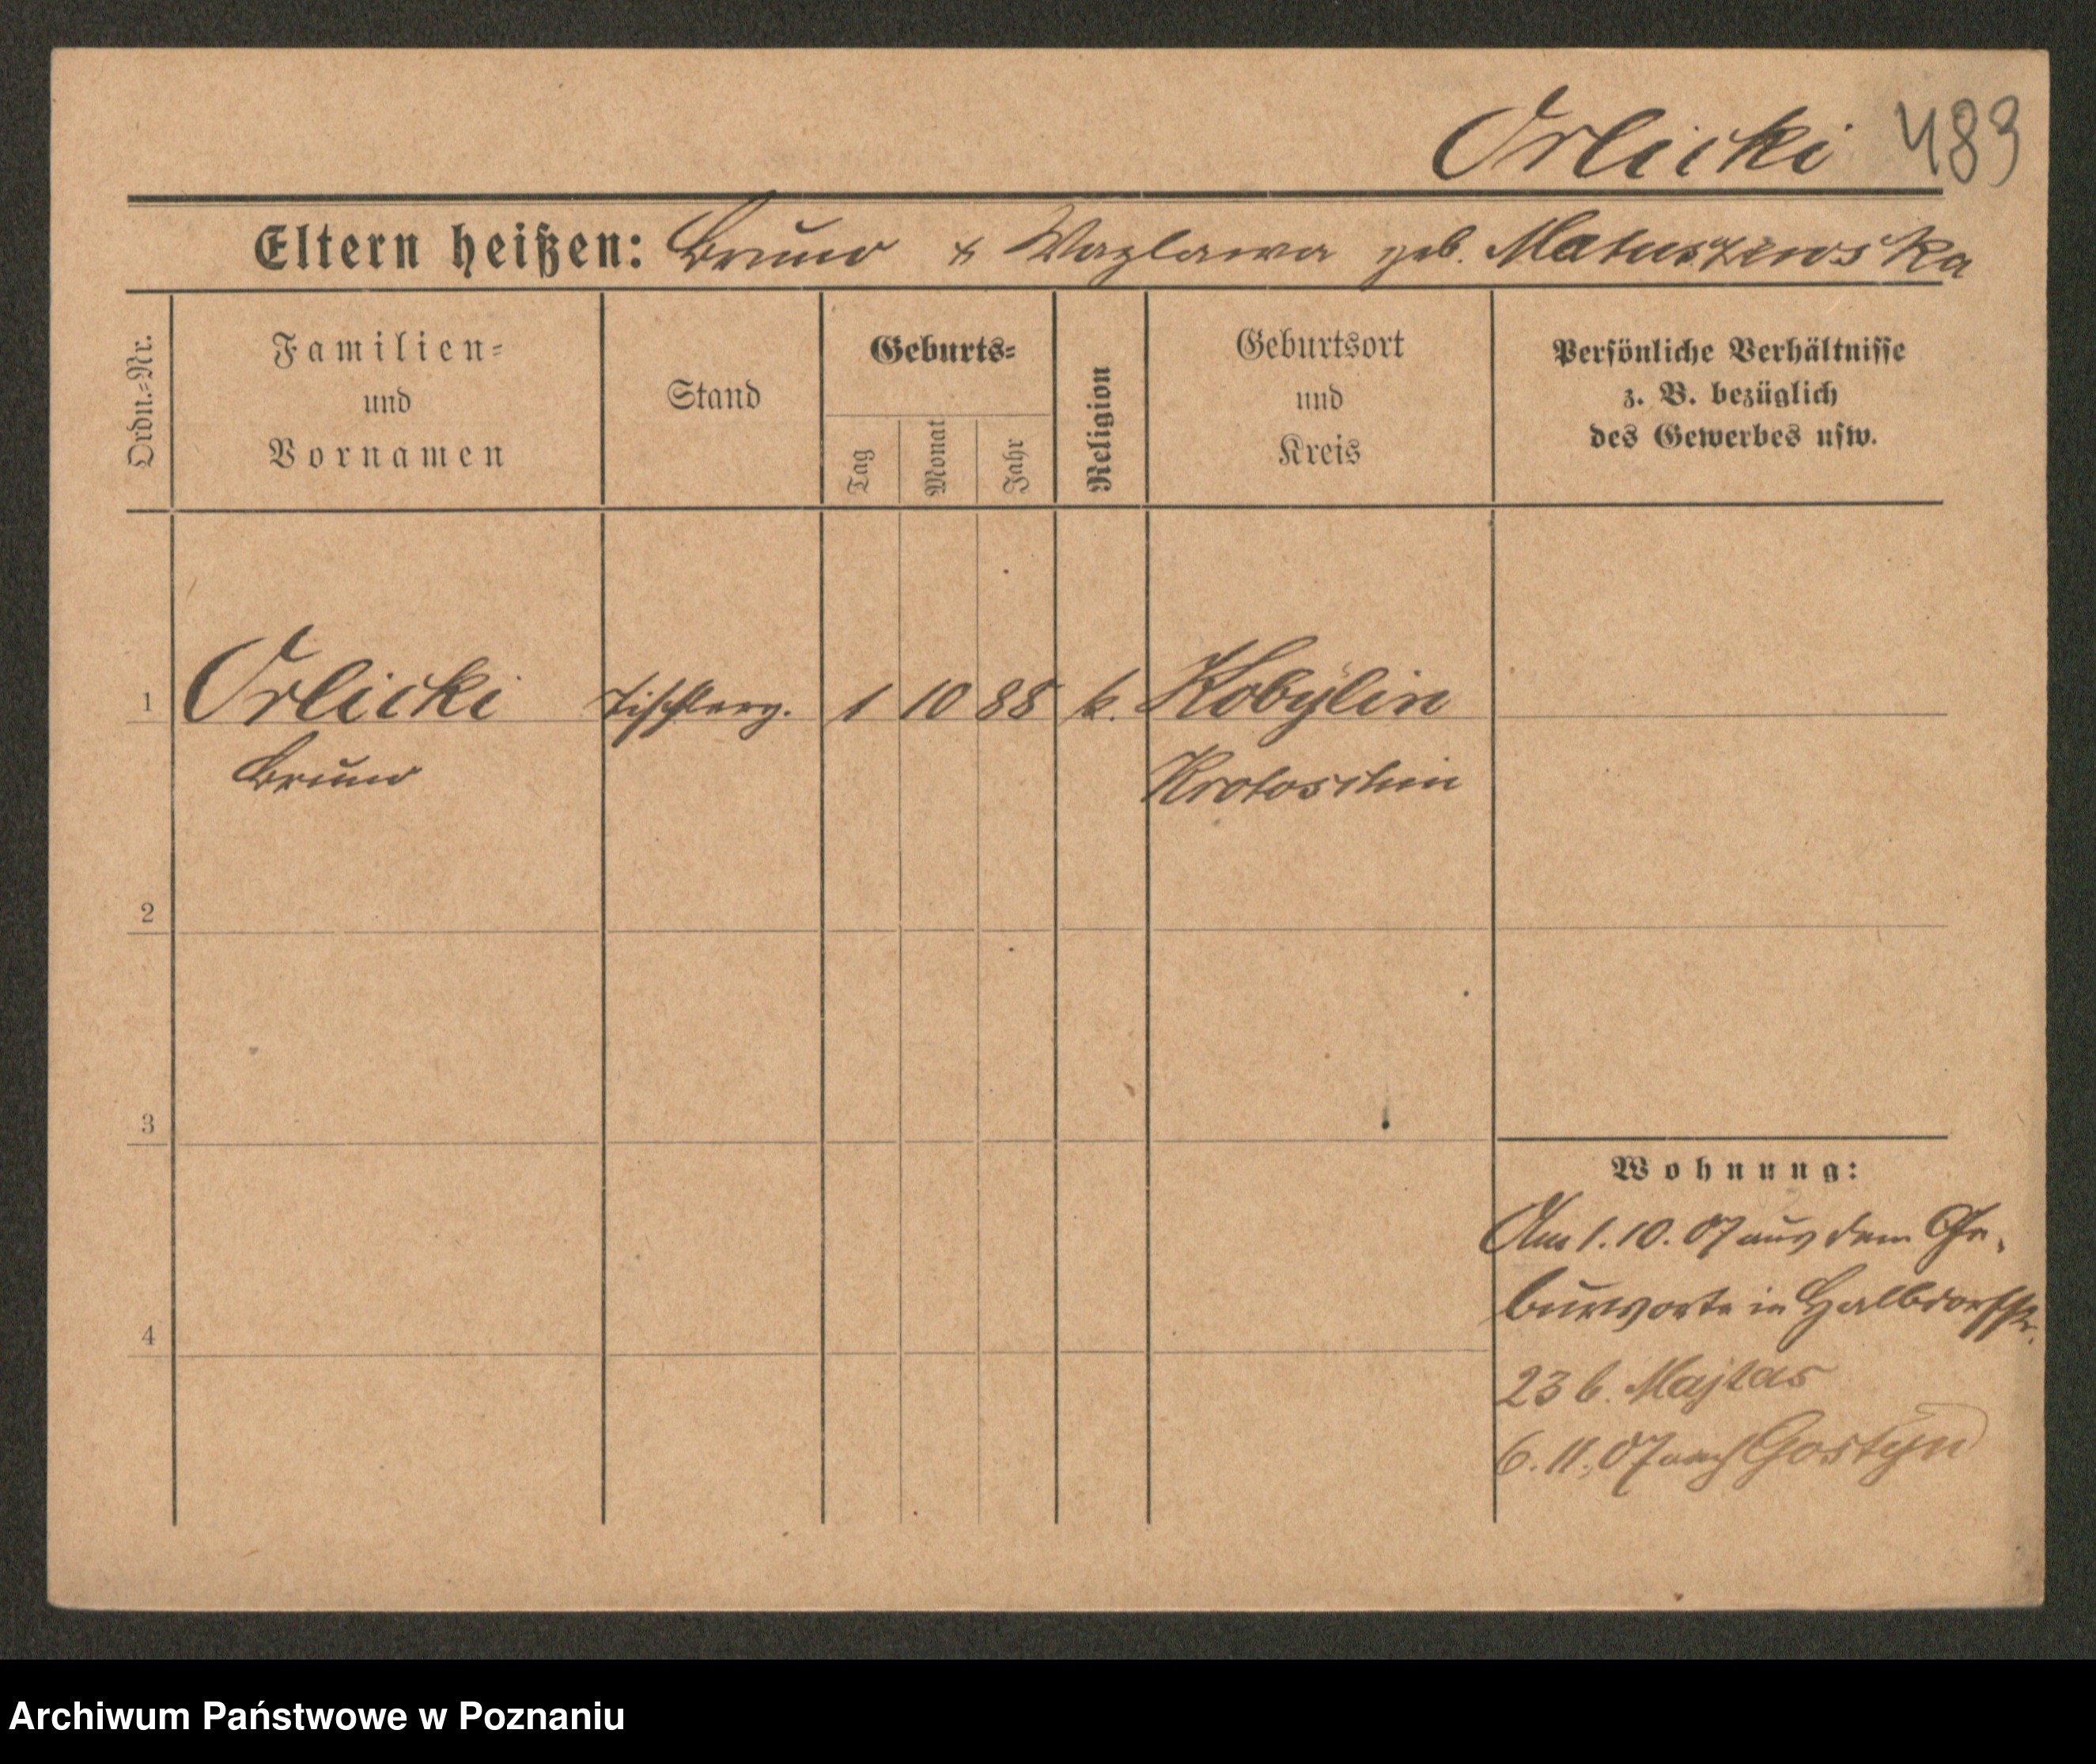 Orlicki 483
Eltern heißen: Bruno & Wazlawa geb. Matuszewska
Ordn.-Nr.
Familien-
und
Vornamen
Stand
Geburts-
Tag
Monat
Jahr
Religion
Geburtsort
und
Kreis
Persönliche Verhältnisse
z. B. bezüglich
des Gewerbes usw.
1 Orlicki Tischlerg. 1 10 88 k. Kobylin
Bruno Krotoschin
2
3
4
Wohnung:
Am 1.10.07 aus dem Ge-
burtsorte in Halbdorfstr.
23 b. Majtas
6.11.07 nach Gostyn
Archiwum Państwowe w Poznaniu